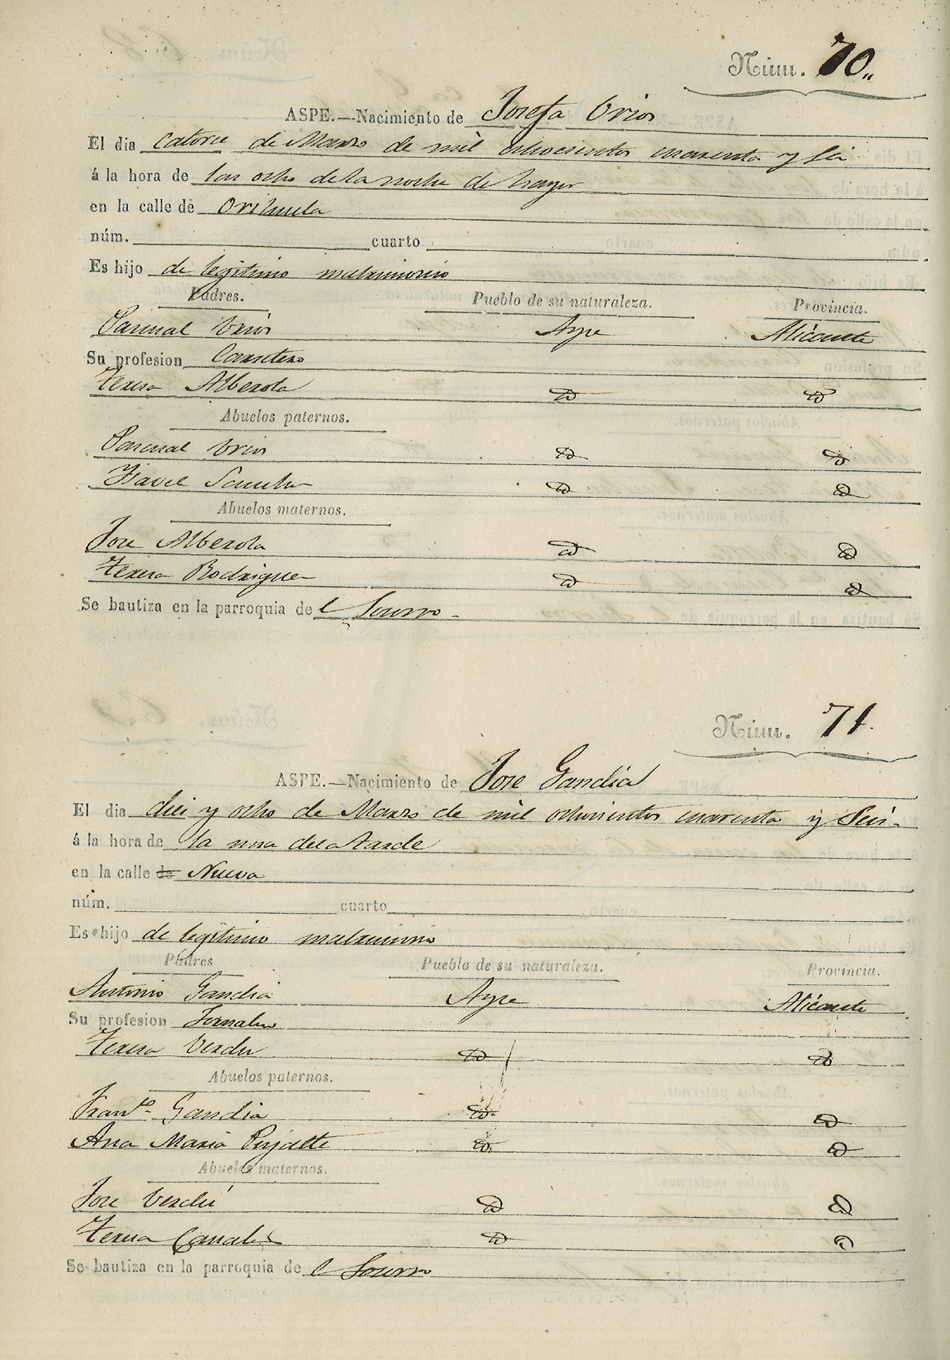 Núm. 70.
ASPE.—Nacimiento de Josefa Urios
El dia catorce de Marzo de mil ochocientos cuarenta y seis
á la hora de las ocho de la noche de hayer
en la calle de Orihuela
núm. cuarto
Es hijo de legitimo matrimonio
Padres. Pueblo de su naturaleza. Provincia.
Pascual Urios Aspe Alicante
Su profesion Carretero
Teresa Alberola id id
Abuelos paternos.
Pascual Urios id id
Isavel Sanchez id id
Abuelos maternos.
Jose Alberola id id
Teresa Rodriguez id id
Se bautiza en la parroquia de l Socorro.
Núm. 71.
ASPE.—Nacimiento de Jose Gandia
El dia diez y ocho de Marzo de mil ochocientos cuarenta y seis.
á la hora de la una de la tarde
en la calle de Nueva
núm. cuarto
Es hijo de legitimo matrimonio
Padres Pueblo de su naturaleza. Provincia.
Antonio Gandia Aspe Alicante
Su profesion Jornalero
Teresa Verdu id id
Abuelos paternos.
Franco. Gandia id id
Ana Maria Pujalte id id
Abuelos maternos.
Jose Verdú id id
Teresa Canales id id
Se bautiza en la parroquia de l Socorro